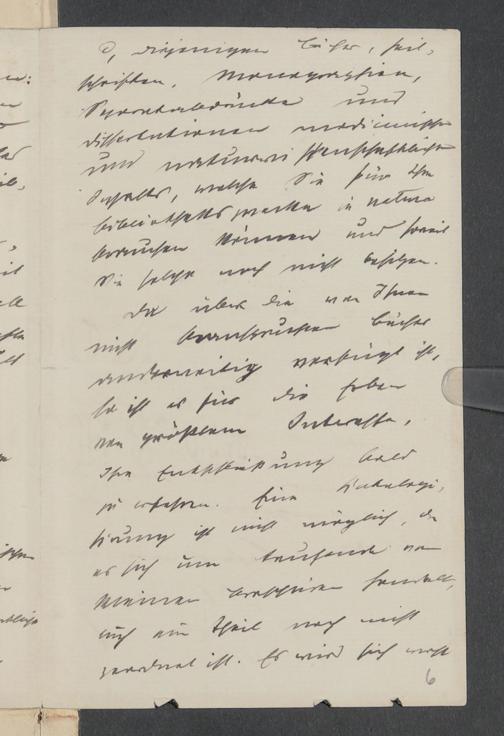 diejenigen Bücher, Zeit-
schriften, Monographien,
Separatabdrücke und
Dissertationen medicinischen
und naturwissenschaftlichen
Inhalts, welche Sie für Ihre
Bibliothekszwecke in natura
brauchen können und soweit
Sie solche noch nicht besitzen.
Da über die von Ihnen
nicht beanspruchten Bücher
anderweitig verfügt ist,
so ist es für die Erben
von größtem Interesse,
Ihre Entschließung bald
zu erfahren. Eine Katalogi-
sirung ist nicht möglich, da
es sich um tausende von
kleinen Broschüren handelt,
auch ein Theil noch nicht
geordnet ist. Es wird sich wohl
6